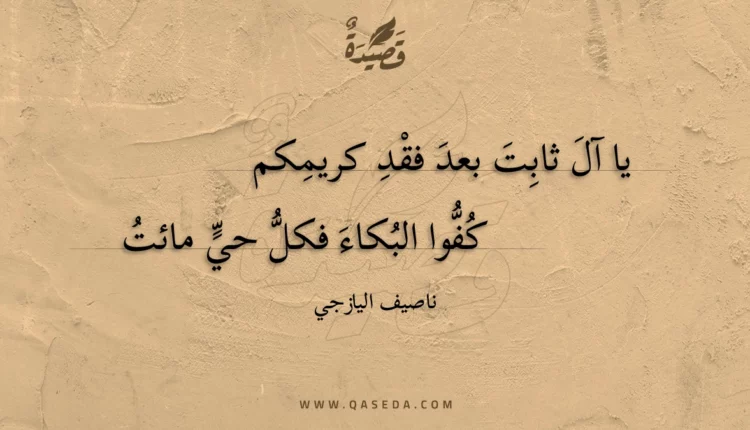 قَصِيدَةٌ
يا آلَ ثابِتَ بعدَ فقْدِ كريمِكم
كُفُّوا البُكاءَ فكلُّ حيٍّ مائتُ
ناصيف اليازجي
WWW.QASEDA.COM